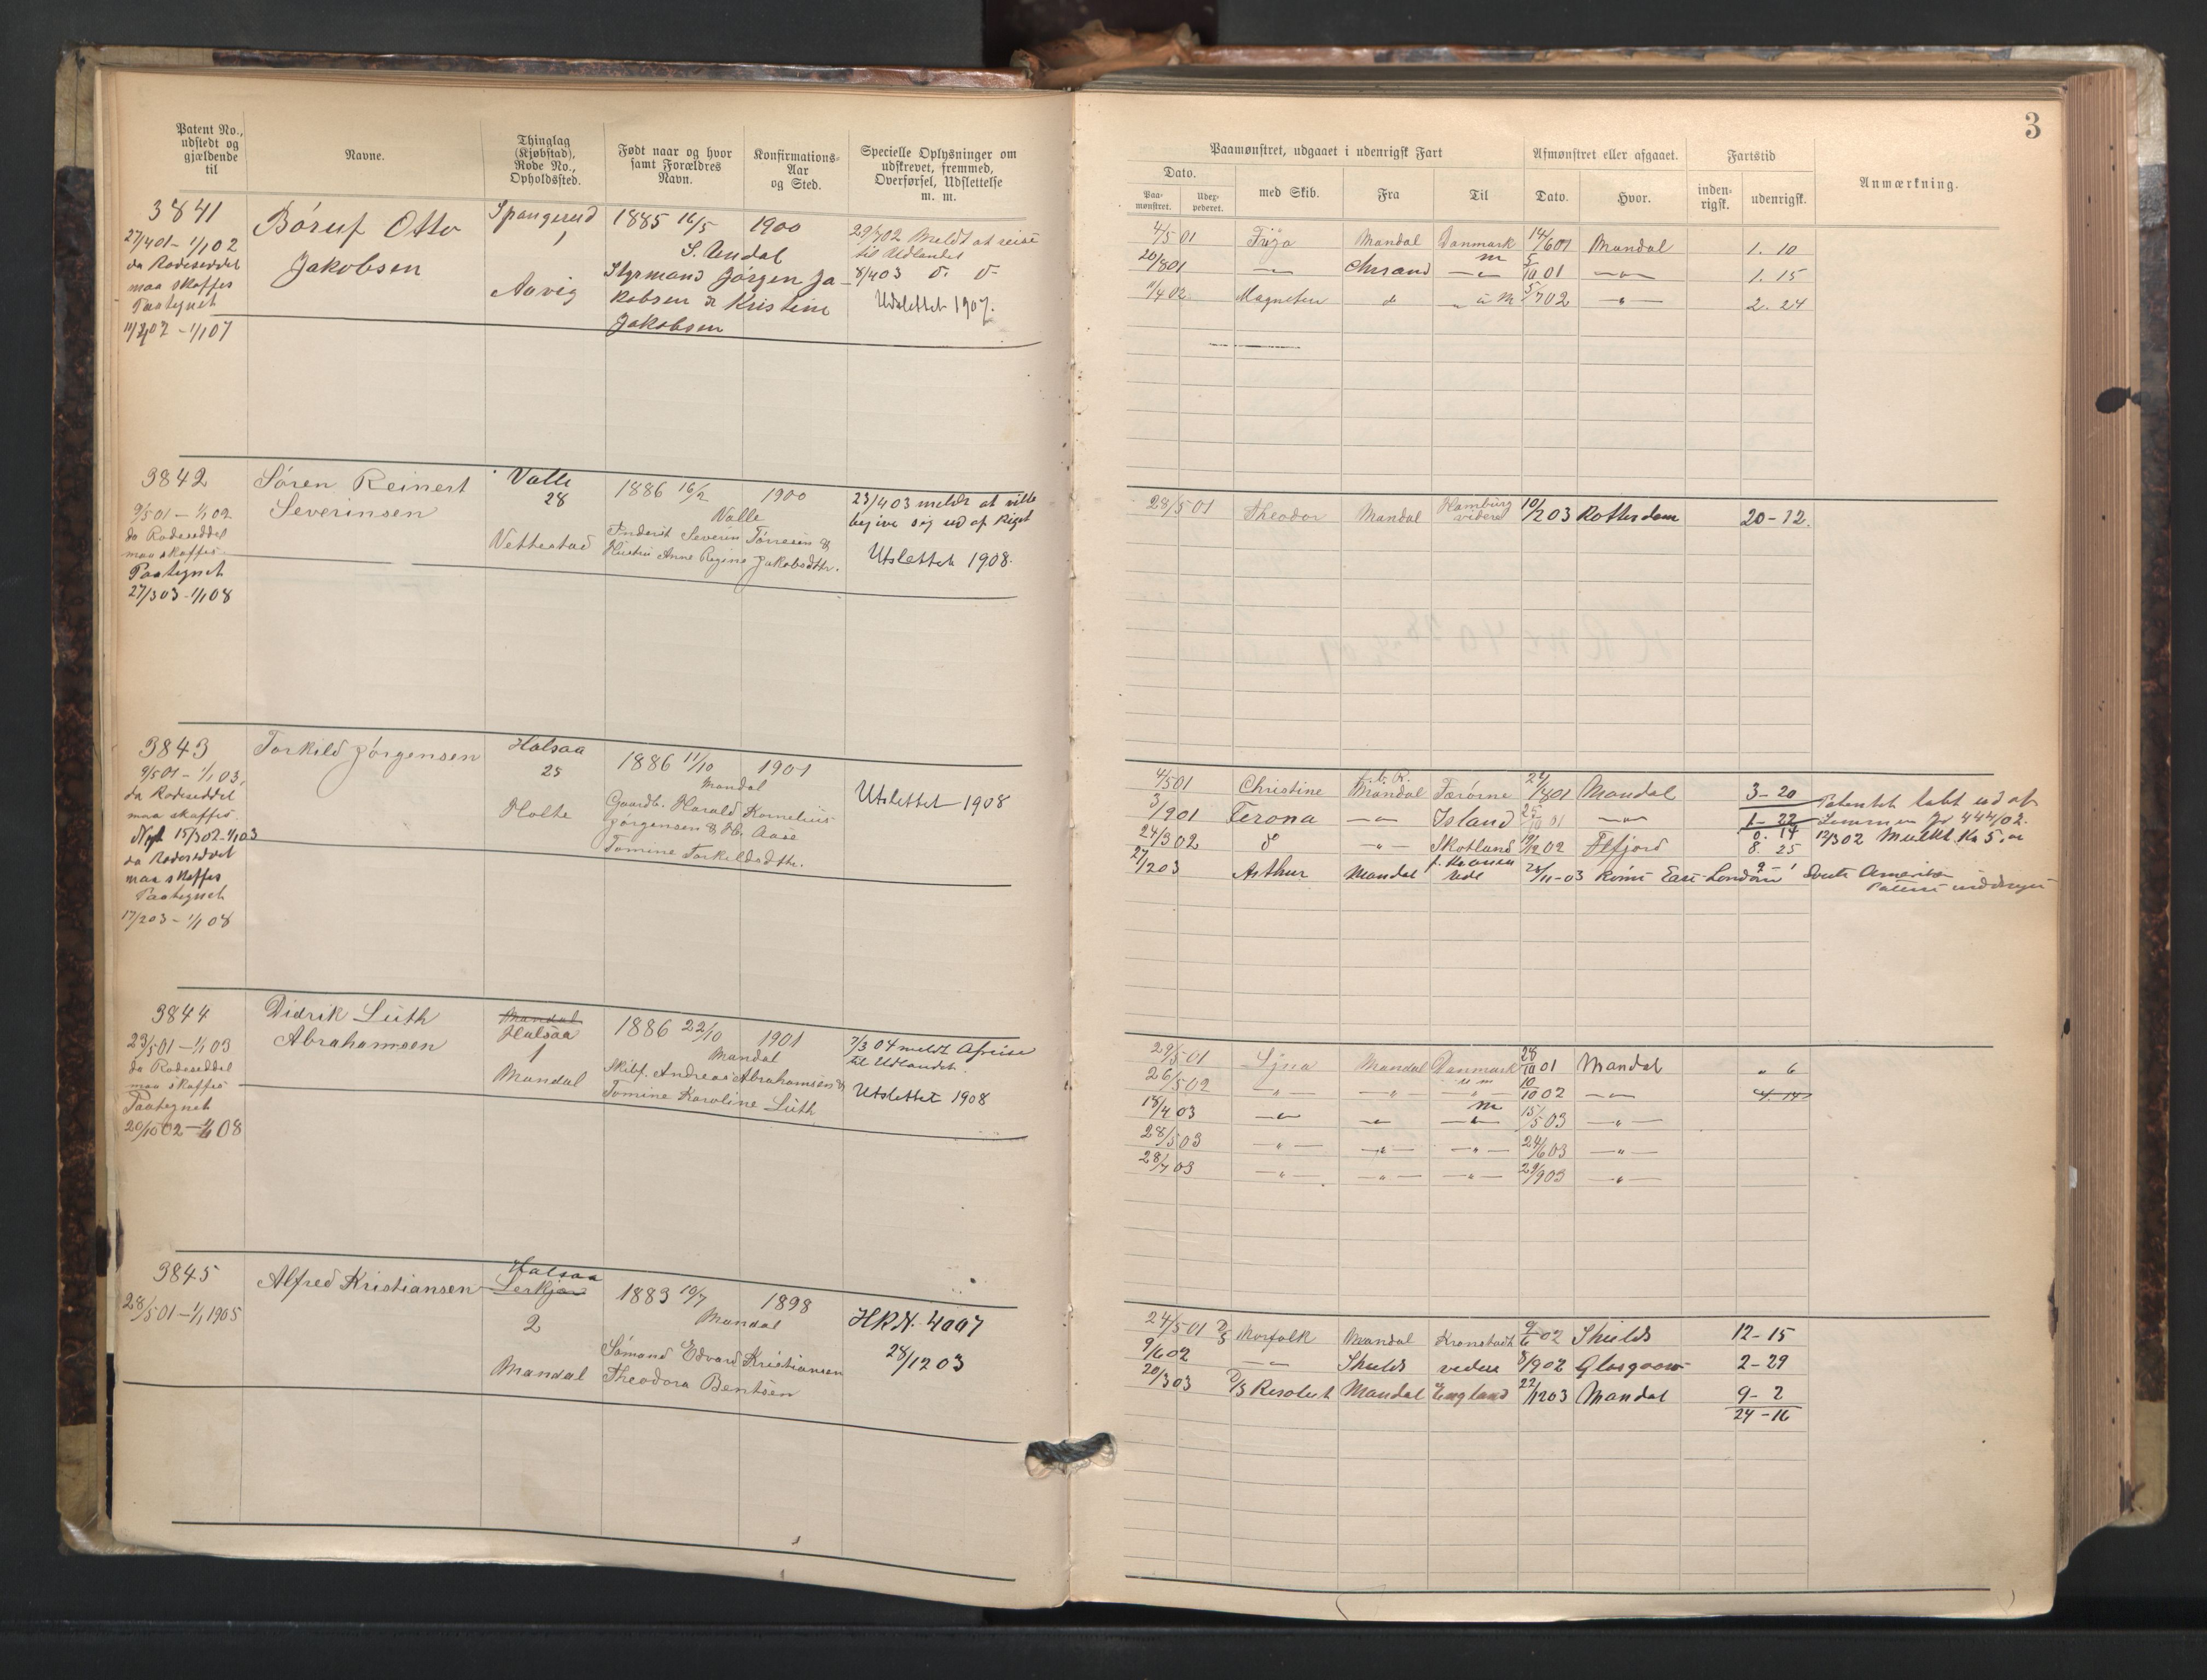 3
Patent No., udstedt og gjældende til
Navne.
Thinglag (Kjøbstad), Rode No., Opholdssted.
Født naar og hvor samt Forældres Navn.
Konfirmations-Aar og Sted.
Specielle Oplysninger om udskrevet, fremmed, Overførsel, Udslettelse m. m.
Paamønstret, udgaaet i udenrigsk Fart
Afmønstret eller afgaaet.
Fartstid
Anmærkning.
Dato.
Paa-mønstret.
Udex-pederet.
med Skib.
Fra
Til
Dato.
Hvor.
inden-rigsk.
udenrigsk.
3841
27/4 01 – 1/1 02
da Rodeseddel
maa skaffes
Paategnet
– 1/1 07
Børuf Otto
Jakobsen
Spangerud
1
Aavig
1885 16/5 1900
S. Undal
Styrmand Jørgen Ja-
kobsen & Kristine
Jakobsen
29/7 02 Meldt at reise
til Udlandet
8/4 03 do do
Udslettet 1907.
4/5 01 Frøja Mandal Danmark 14/6 01 Mandal 1. 10
20/8 01 — Chrsand — 5/10 01 — 1. 15
11/4 02 Magneten do 5/7 02 — 2. 24
3842
9/5 01 – 1/1 02
da Rodeseddel
maa skaffes
Paategnet
27/3 03 – 1/1 08
Søren Reinert
Severinsen
Valle
28
Vettestad
1886 16/2 1900
Valle
Frederik Severin Tørresen &
Hustru Anne Regine Jakobsdtr.
23/4 03 meldt at ville
begive sig ud af Riget
Utslettet 1908.
28/5 01 Theodor Mandal Hamburg videre 10/2 03 Rotterdam 20 – 12.
3843
9/5 01 – 1/1 03,
da Rodeseddel
maa skaffes.
Nyt 15/3 02 – 1/1 03
da Rodeseddel
maa skaffes
Paategnet
17/2 03 – 1/1 08
Torkild Jørgensen
Halsaa
25
Holte
1886 11/10 1901
Mandal
Gaardb. Harald Kornelius
Jørgensen & H. Aase
Tomine Torkildsdtr.
Utslettet 1908
4/5 01 Christine Mandal Færørne 24/8 01 Mandal 3 – 20
3/9 01 Ferona — Island 01 — 1 – 22
24/3 02 do — Skotland 19/12 02 8. 25
27/2 03 Arthur Mandal 11-03 East London
Patentet tabt ud af
Lommen Jr 444/02.
12/3 02 Mulkt Kr 5,00
3844
23/5 01 – 1/1 03
da Rodeseddel
maa skaffes
Paategnet
20/10 02 – 1/1 08
Didrik Lüth
Abrahamsen
Mandal
Halsaa
1
Mandal
1886 22/10 1901
Mandal
Skibf. Andreas Abrahamsen &
Tomine Karoline Lüth
7/3 04 meldt Afreise
til Udlandet.
Utslettet 1908
29/5 01 Mandal Danmark 28/10 01 Mandal „ 6
26/5 02 — „ — — „ — — „ — 10/10 02 — „ — 4. 14
18/4 03 — „ — — „ — — „ — 15/5 03 — „ —
28/5 03 — „ — — „ — — „ — 24/6 03 — „ —
28/7 03 — „ — — „ — — „ — 29/9 03 — „ —
3845
28/5 01 – 1/1 1905
Alfred Kristiansen
Halsaa
2
Mandal
1883 10/7 1898
Mandal
Sømand Edvard Kristiansen
Theodora Bentsen
H.R.N. 4007
28/12 03
24/5 01 D/S Norfolk Mandal Kronstadt 9/6 02 Shields 12 – 15
9/6 02 — Shields videre 8/9 02 Glasgow 2 – 29
20/3 03 D/S Resolut Mandal England 22/12 03 Mandal 9 – 2
24 – 16